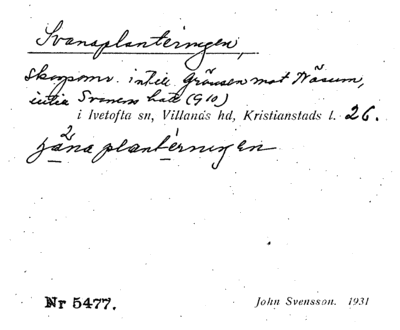 Svanaplanteringen,
skogsomr. intill Gränsen mot Näsum,
intill Svanens hatt (G10)
i Ivetofta sn, Villands hd, Kristianstads l. 26.
planterningen
Nr 5477.
John Svensson. 1931